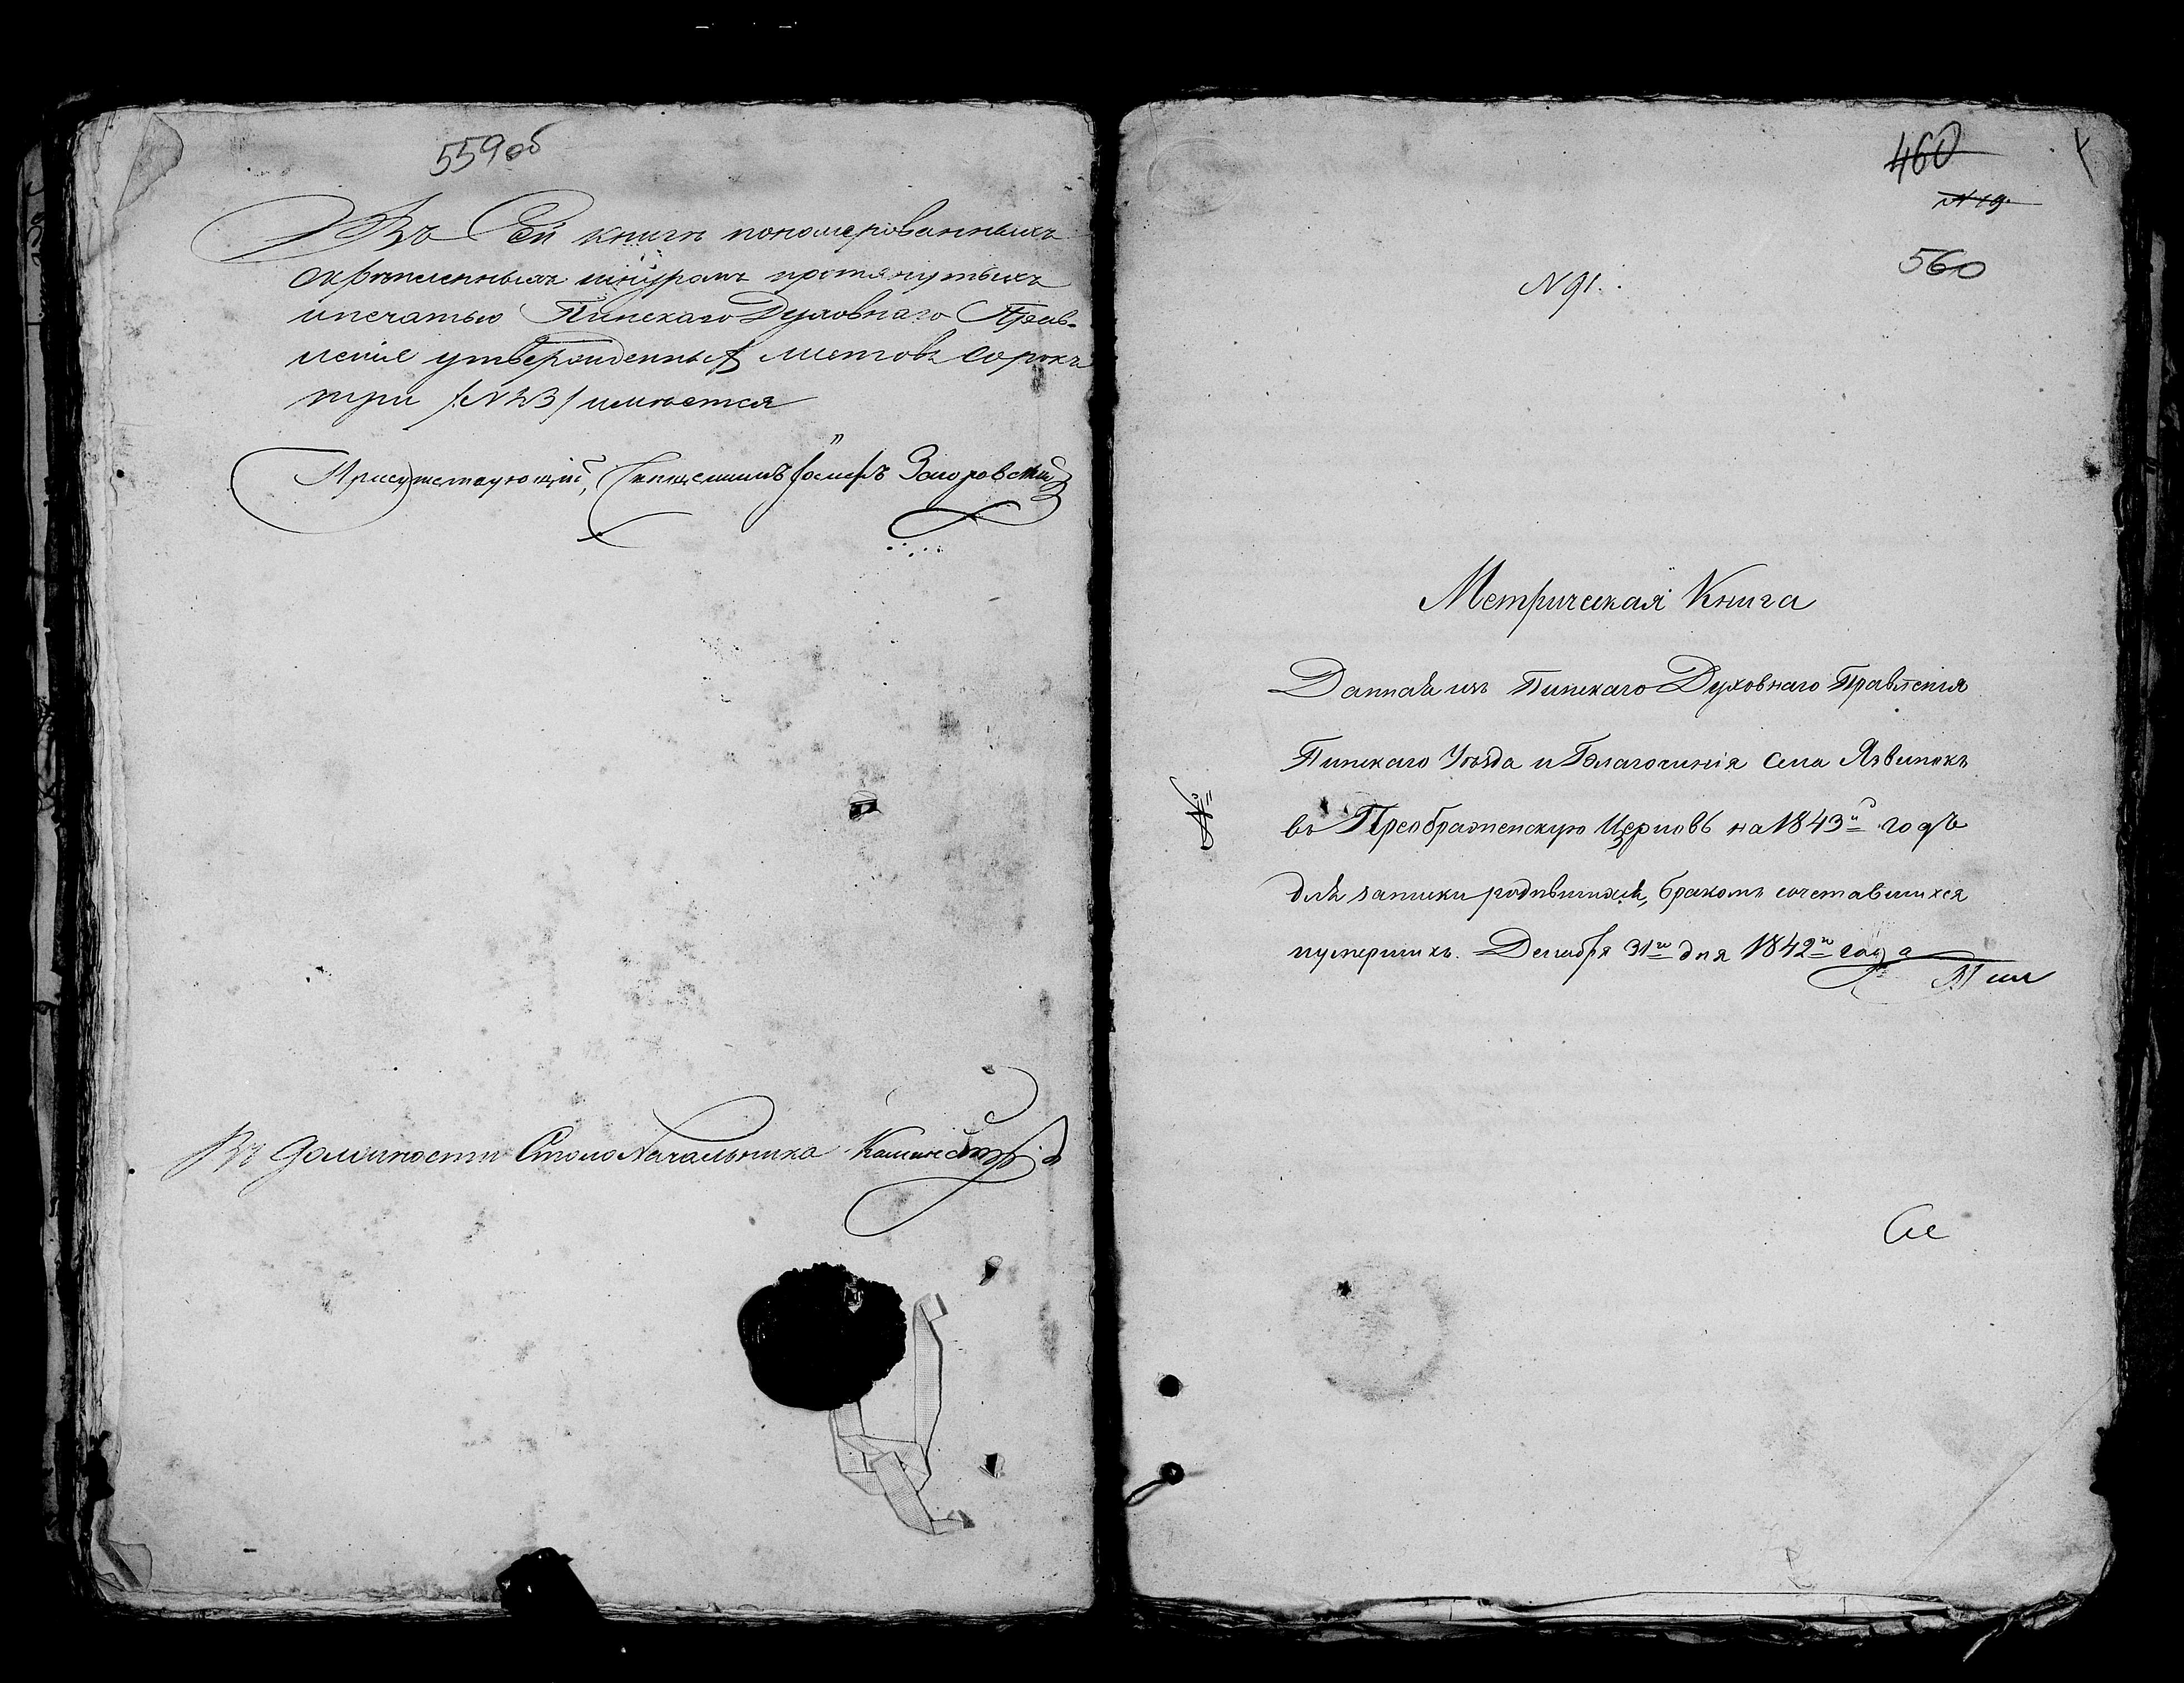 559 об
Въ Сей книгѣ пономерованныхъ
скрѣпленныхъ шнуромъ протянутыхъ
и печатью Пинскаго Духовнаго Прав-
ленія утвержденныхъ листовъ сорокъ
три /N 43/ имѣется
Присутствующій, Священникъ Іосифъ
Въ должности Столоначальника
460
N 19.
560
N 91.
Метрическая Книга
Данная изъ Пинскаго Духовнаго Правленія
Пинскаго Уѣзда и Благочинія села Язвинокъ
въ Преображенскую Церковь на 1843й годъ
для записки родившихся, бракомъ сочетавшихся
и умершихъ. Декабря 31го дня 1842го года
Пин
Се